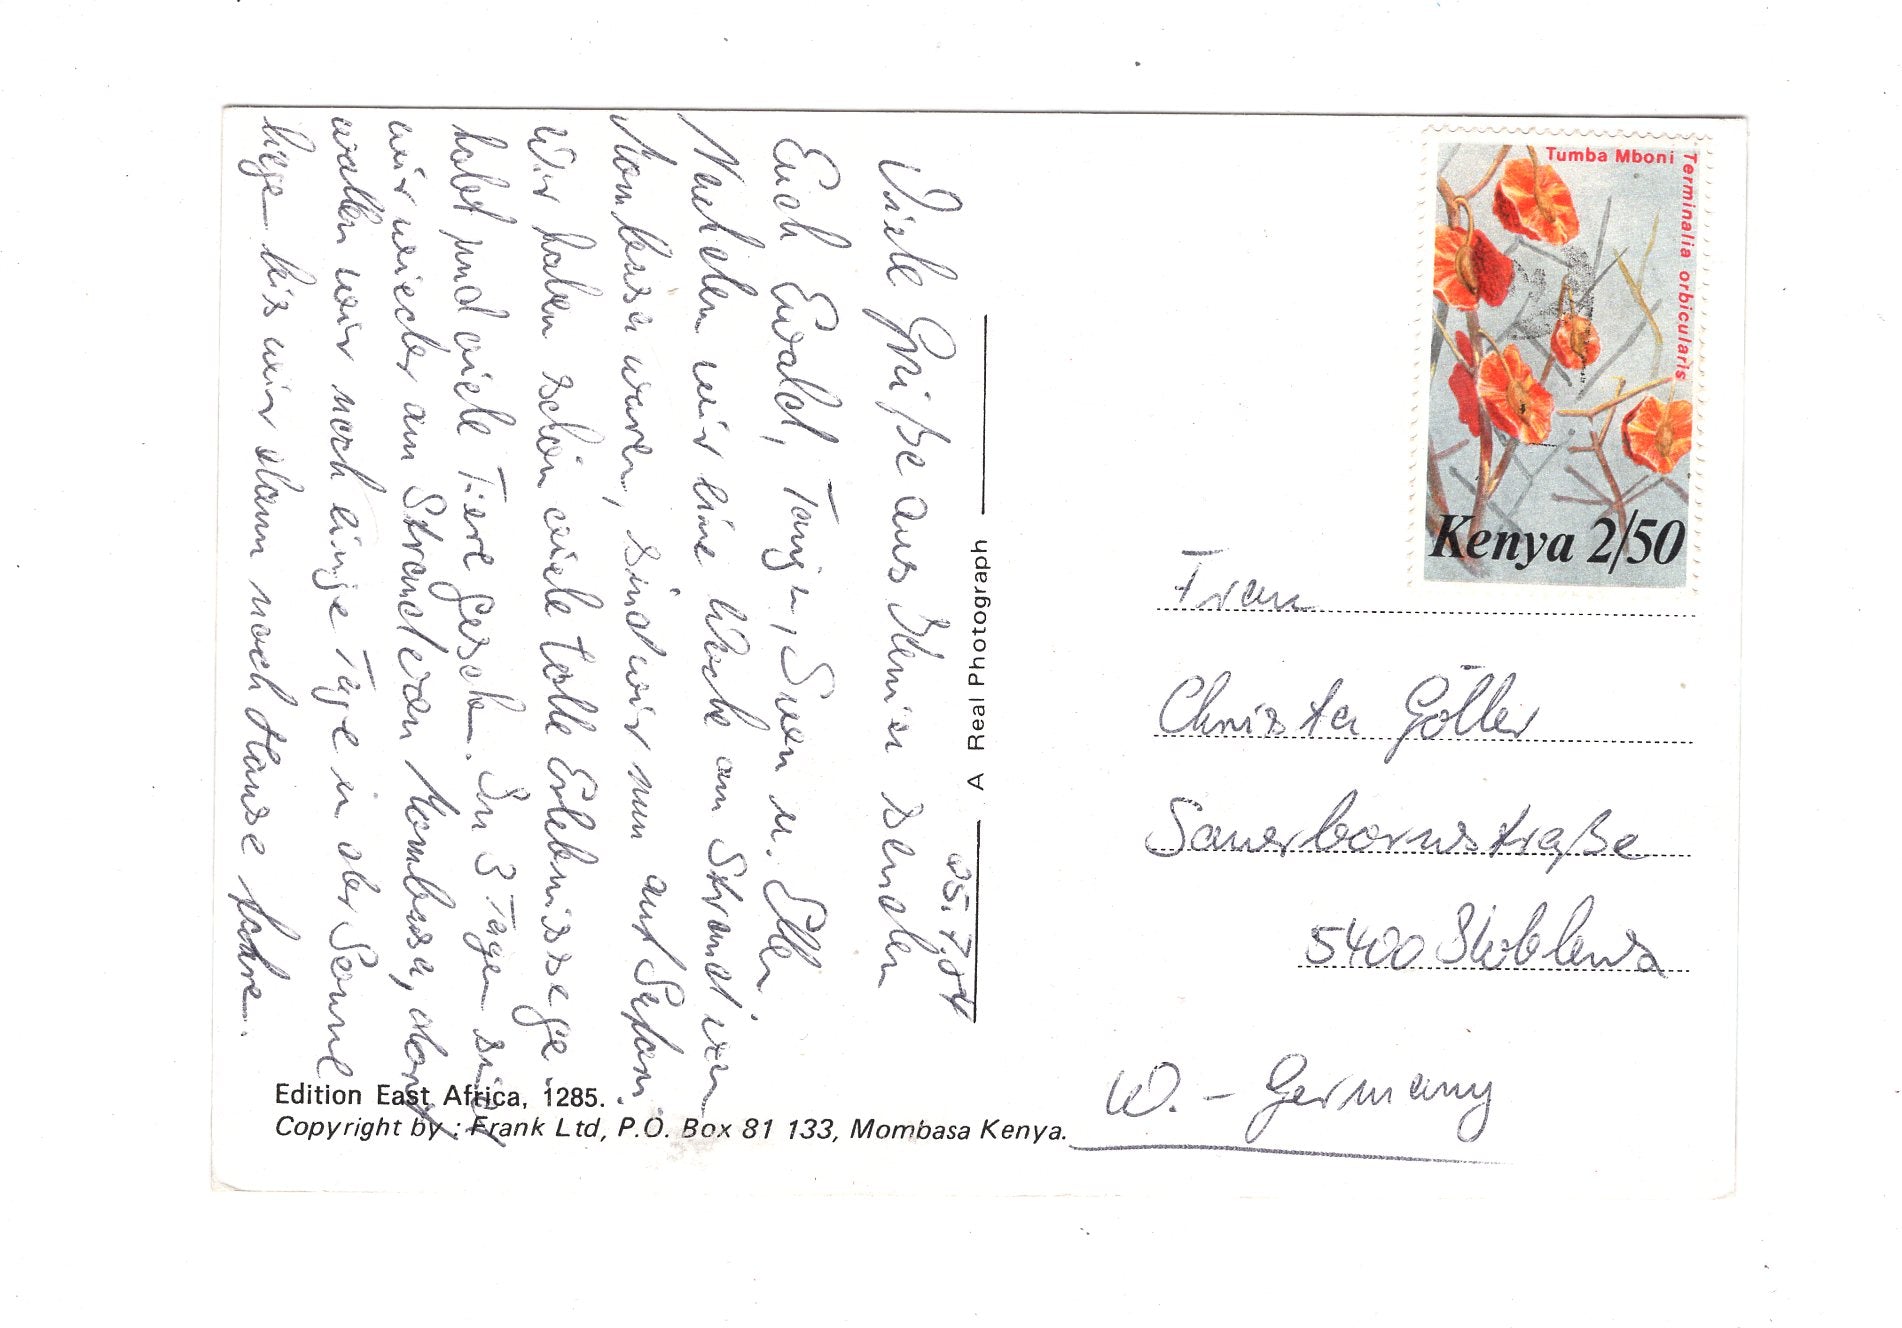 25.7.84
Viele Grüße aus Kenia senden
Euch Ewald, Tanja, Sven u. Elli
Nachdem wir eine Woche am Strand von
Mombasa waren, sind wir nun auf Safari.
Wir haben schon viele tolle Erlebnisse ge-
habt und viele Tiere gesehen. In 3 Tagen sind
wir wieder am Strand von Mombasa, dort
wollen wir noch einige Tage in der Sonne
liegen bis wir dann nach Hause fahren.
A Real Photograph
Edition East Africa, 1285.
Copyright by : Frank Ltd, P.O. Box 81 133, Mombasa Kenya.
Tumba Mboni
Terminalia orbicularis
Kenya 2/50
Frau
Christa Göller
Sauerbornstraße
5400 Koblenz
W. - Germany